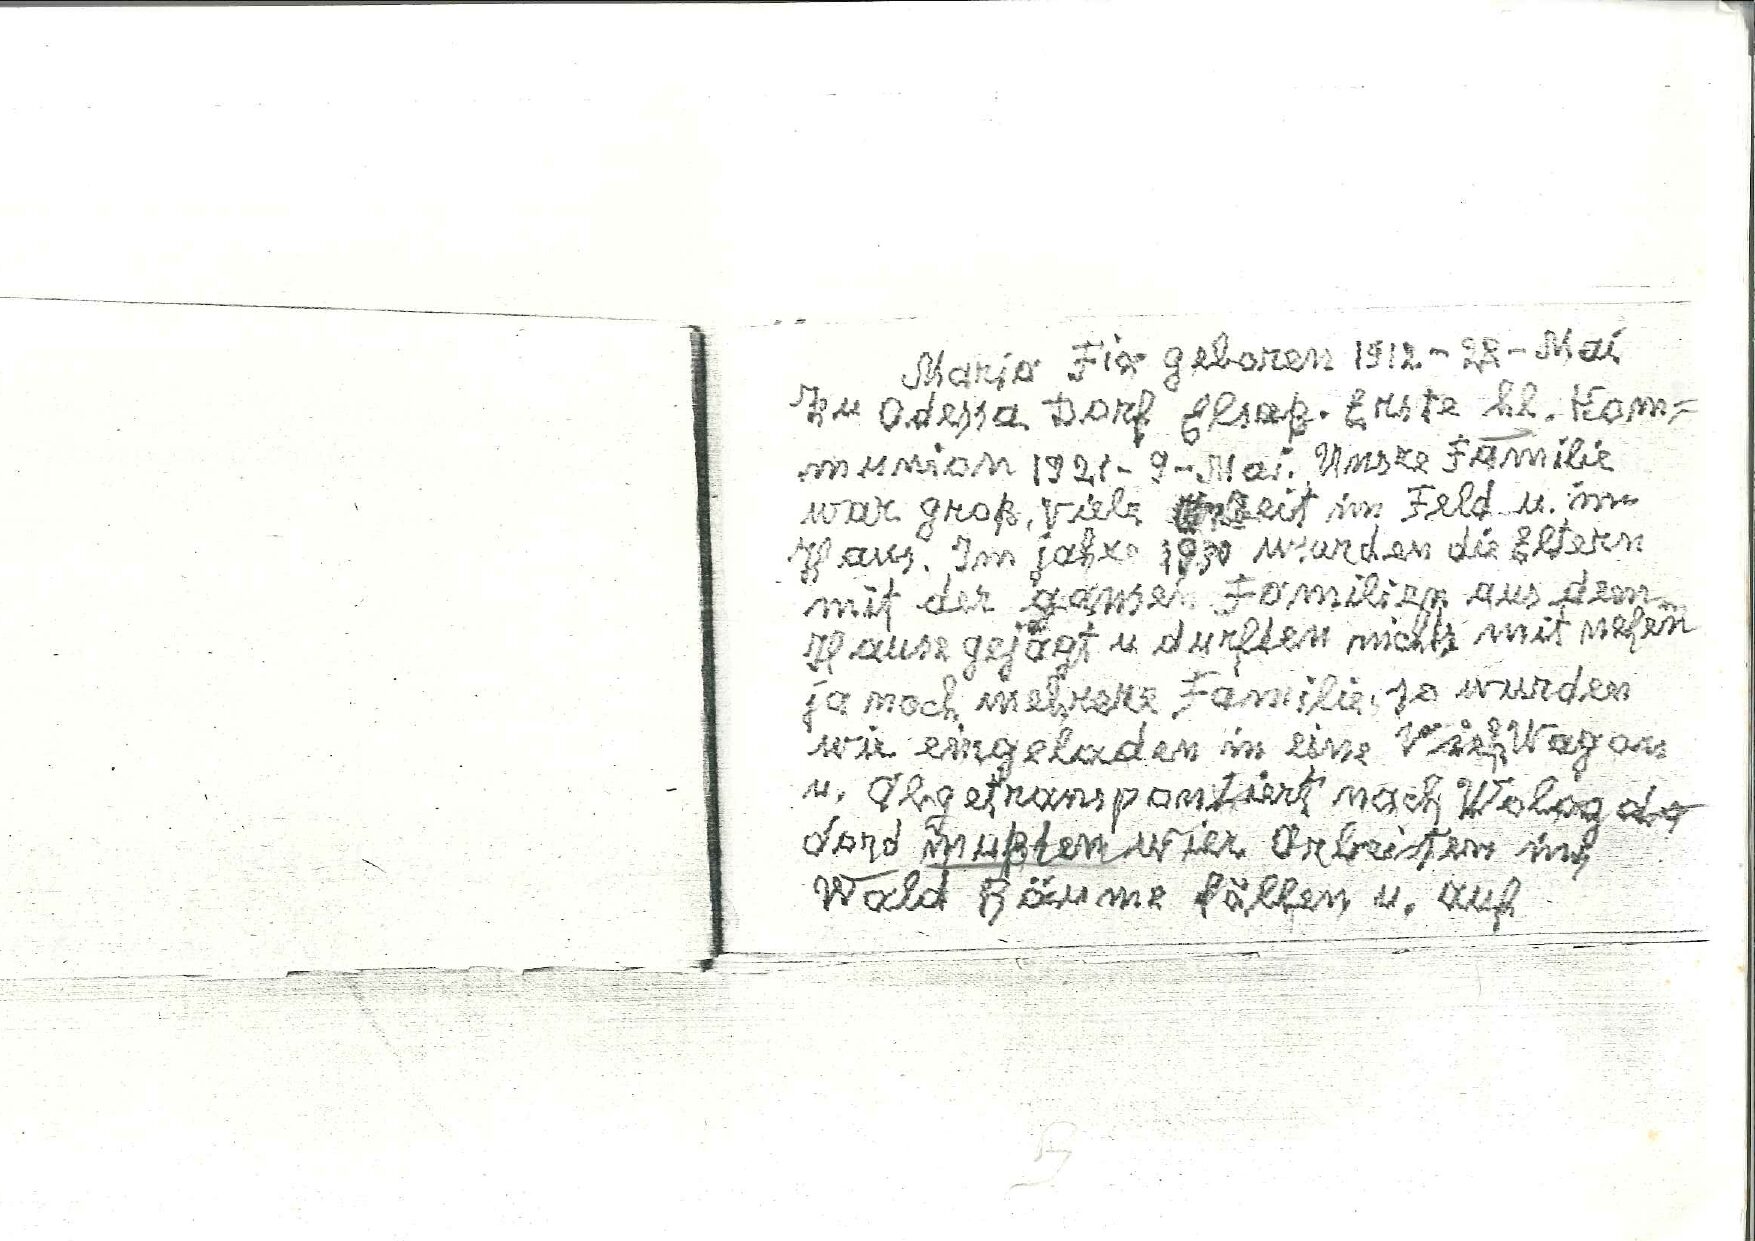 Maria Fix geboren 1912-22-Mai
Zu Odessa Dorf Elsaß. Erste hl. Kom=
munion 1921-9-Mai. Unsre Familie
war groß, viele Arbeit im Feld u. im
Haus. Im jahre 1930 wurden die Eltern
mit der ganzen Familien aus dem
Hause gejagt u durften nichts mit nehen
ja noch mehrere Familie, so wurden
wir eingeladen in eine Vieh Wagon
u. Abgetransportiert nach Wologda
dord mußten wier Arbeiten im
Wald Bäume fällen u. auf